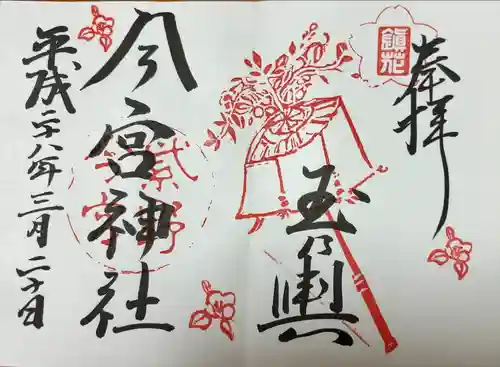 奉拝
鎮花
玉乃輿
今宮神社
紫野
平成二十八年三月二十日